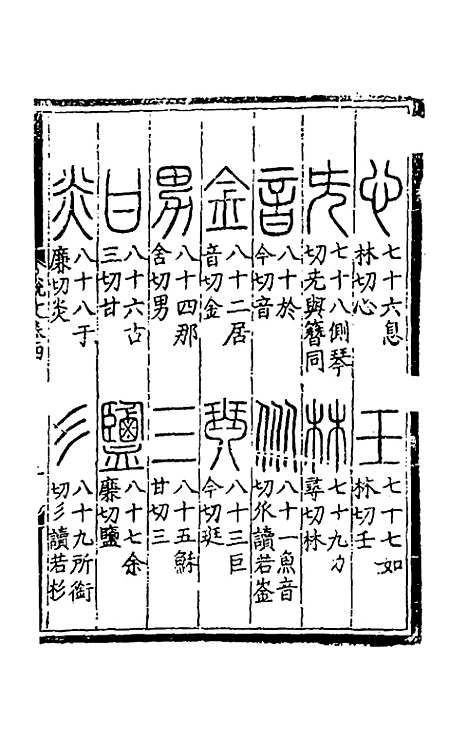 心 七十六息
林切心
壬 七十七如
林切壬
兂 七十八側琴
切兂與簪同
林 七十九力
尋切林
音 八十於
今切音
㐺 八十一魚音
切㐺讀若崟
金 八十二居
音切金
珡 八十三巨
今切珡
男 八十四那
含切男
三 八十五穌
甘切三
甘 八十六古
三切甘
鹽 八十七余
廉切鹽
炎 八十八于
廉切炎
彡 八十九所銜
切彡讀若杉
說文卷四